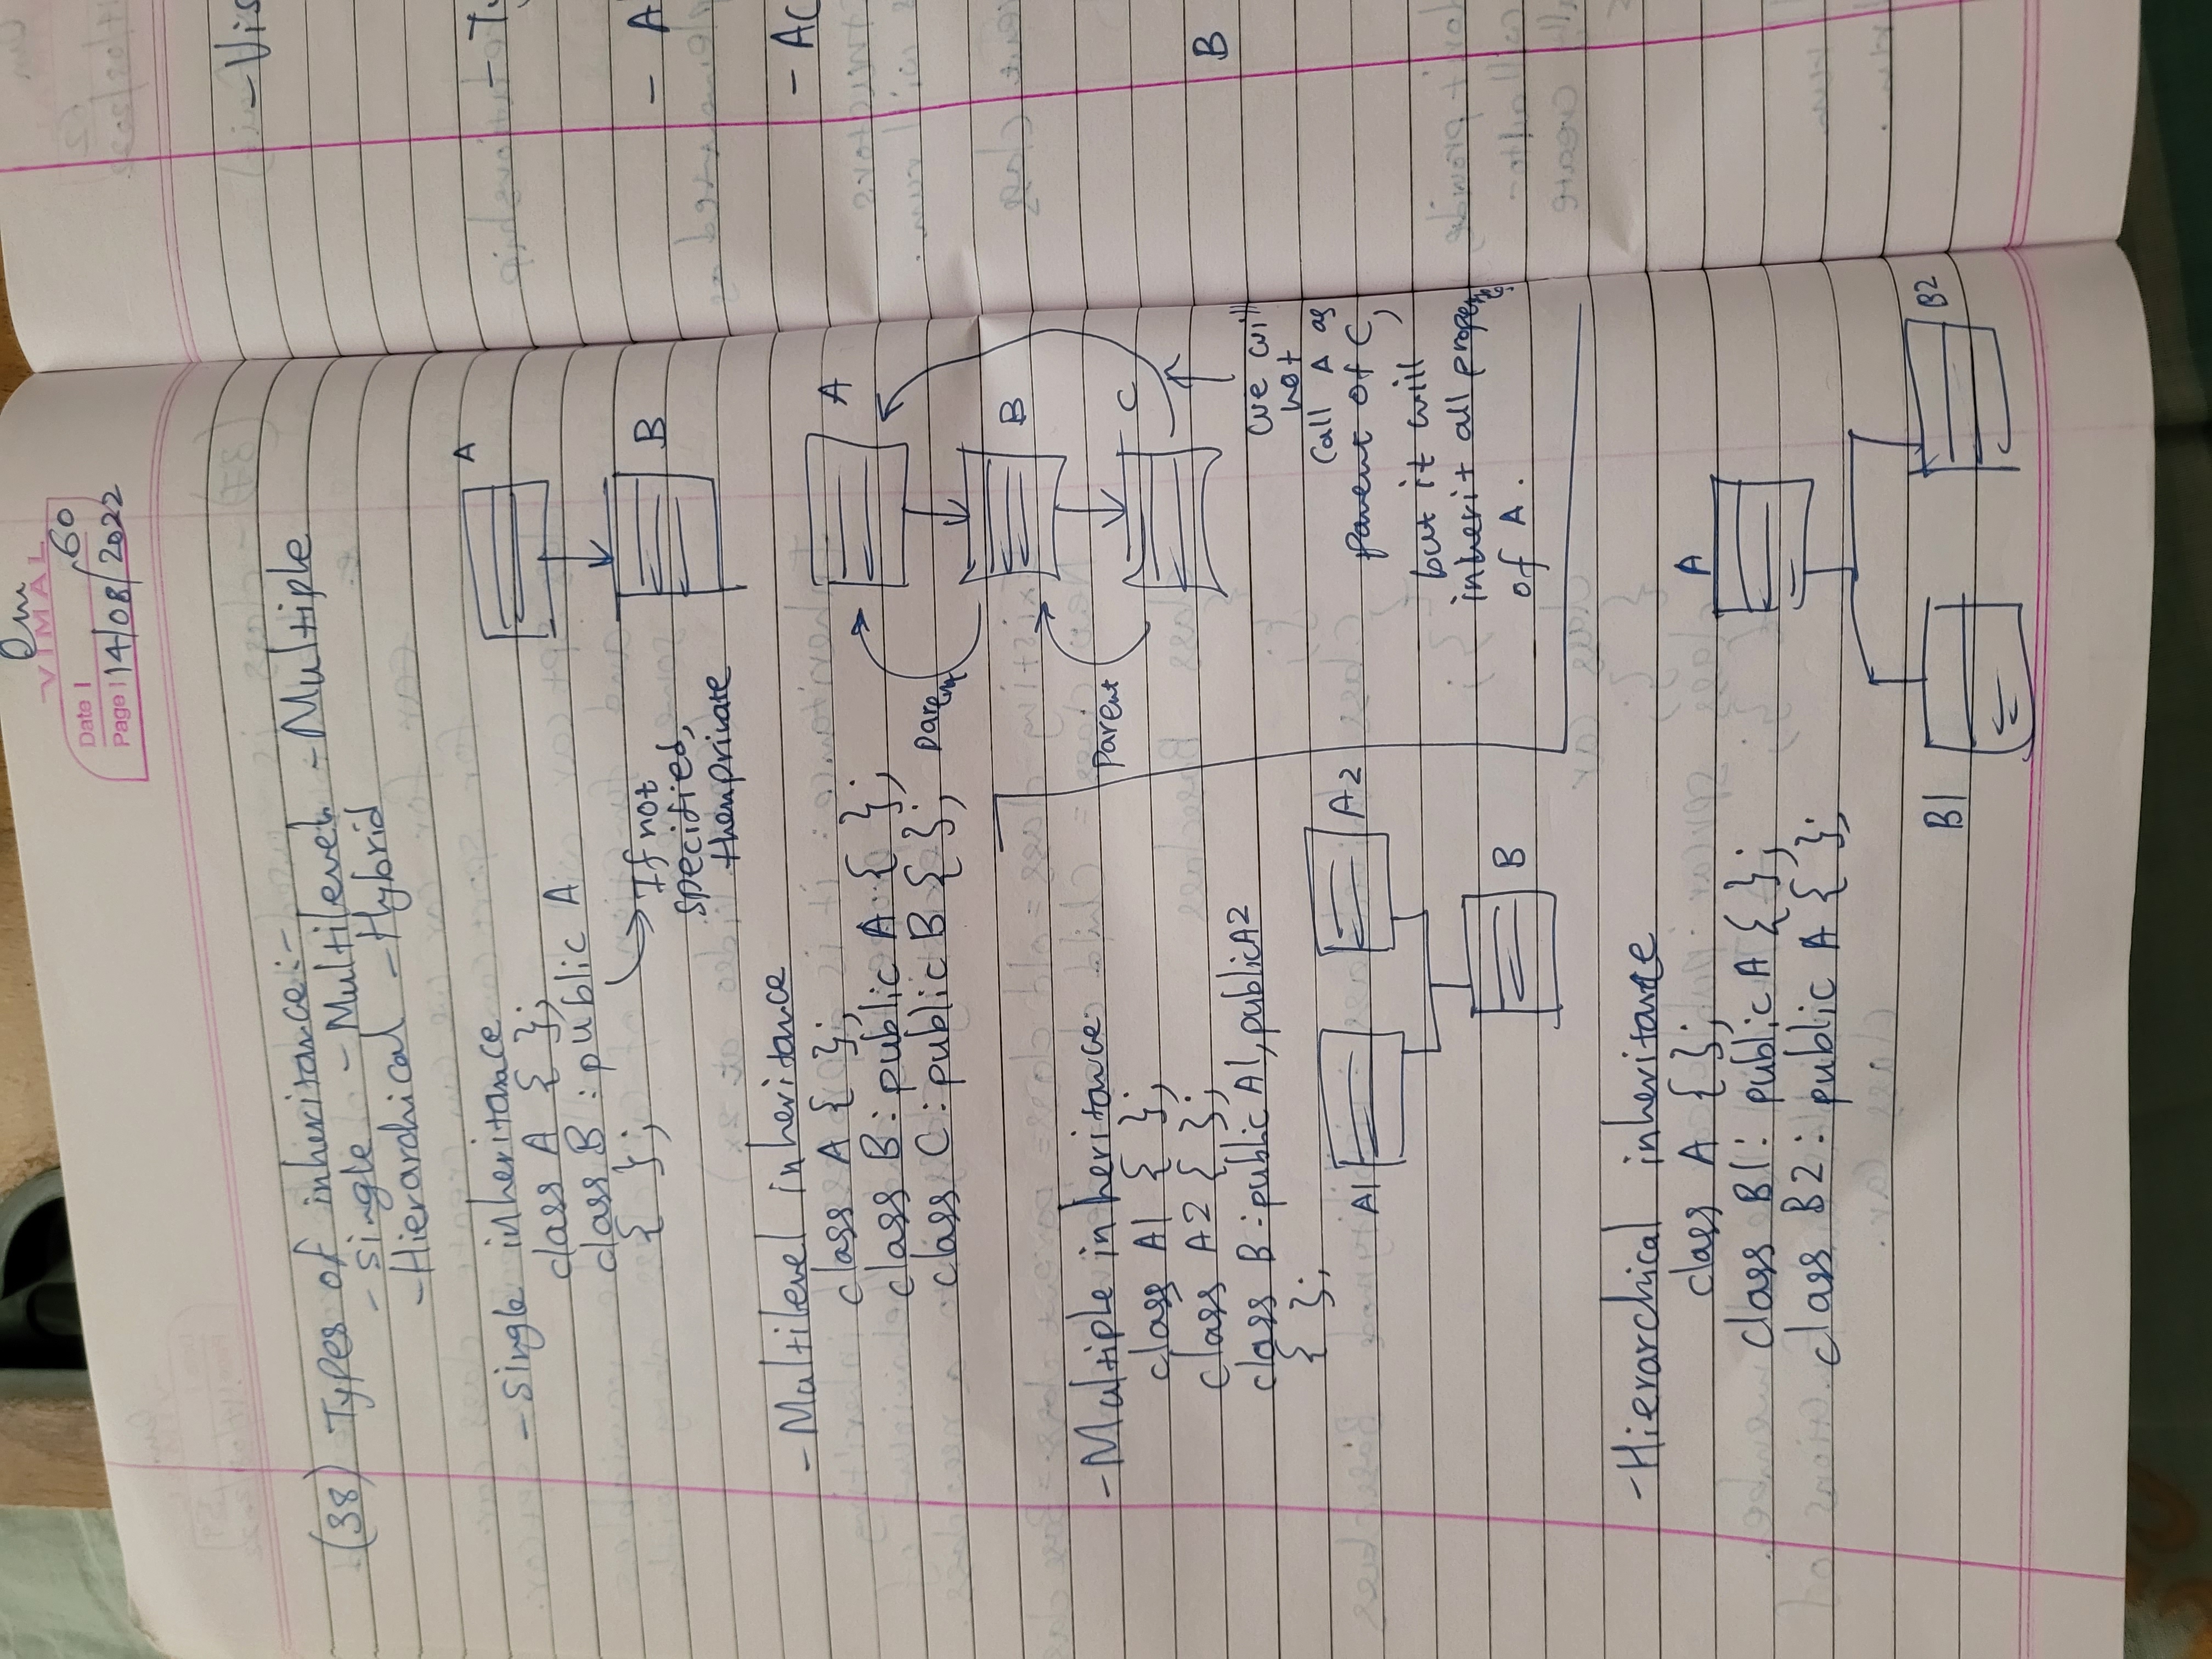 Om
VIMAL
Date | 60
Page | 14/08/2022
(38) Types of inheritance:-
- Single - Multilevel - Multiple
- Hierarchical - Hybrid
- Single inheritance
class A { };
class B : public A
{ };
If not
specified,
then private
A
B
- Multilevel inheritance
class A { };
class B : public A { };
class C : public B { };
A
parent
B
parent
C
we will
not
call A as
parent of C,
but it will
inherit all properties
of A.
- Multiple inheritance
class A1 { };
class A2 { };
class B : public A1, public A2
{ };
A1
A2
B
- Hierarchical inheritance
class A { };
class B1 : public A { };
class B2 : public A { };
A
B1
B2
- Vis
- Ty
- A
- AC
B